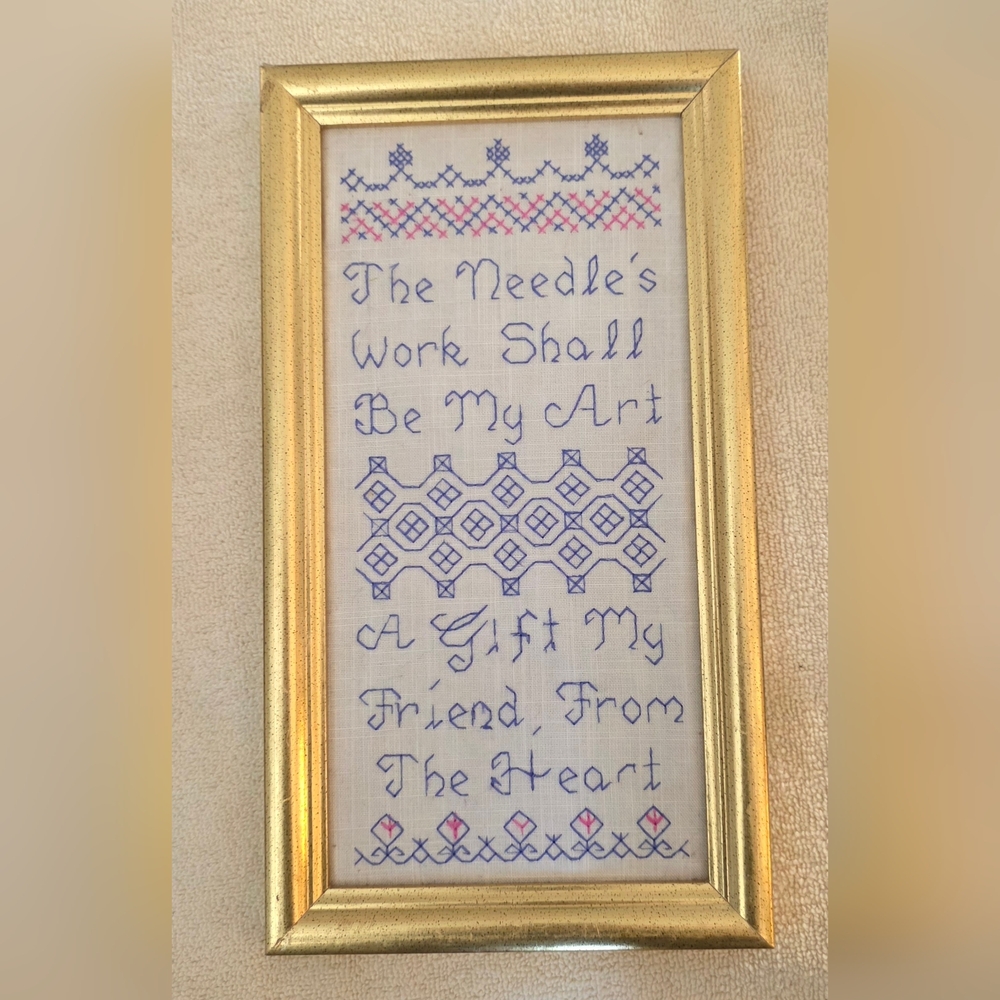 The Needle's
Work Shall
Be My Art
A Gift My
Friend, From
The Heart